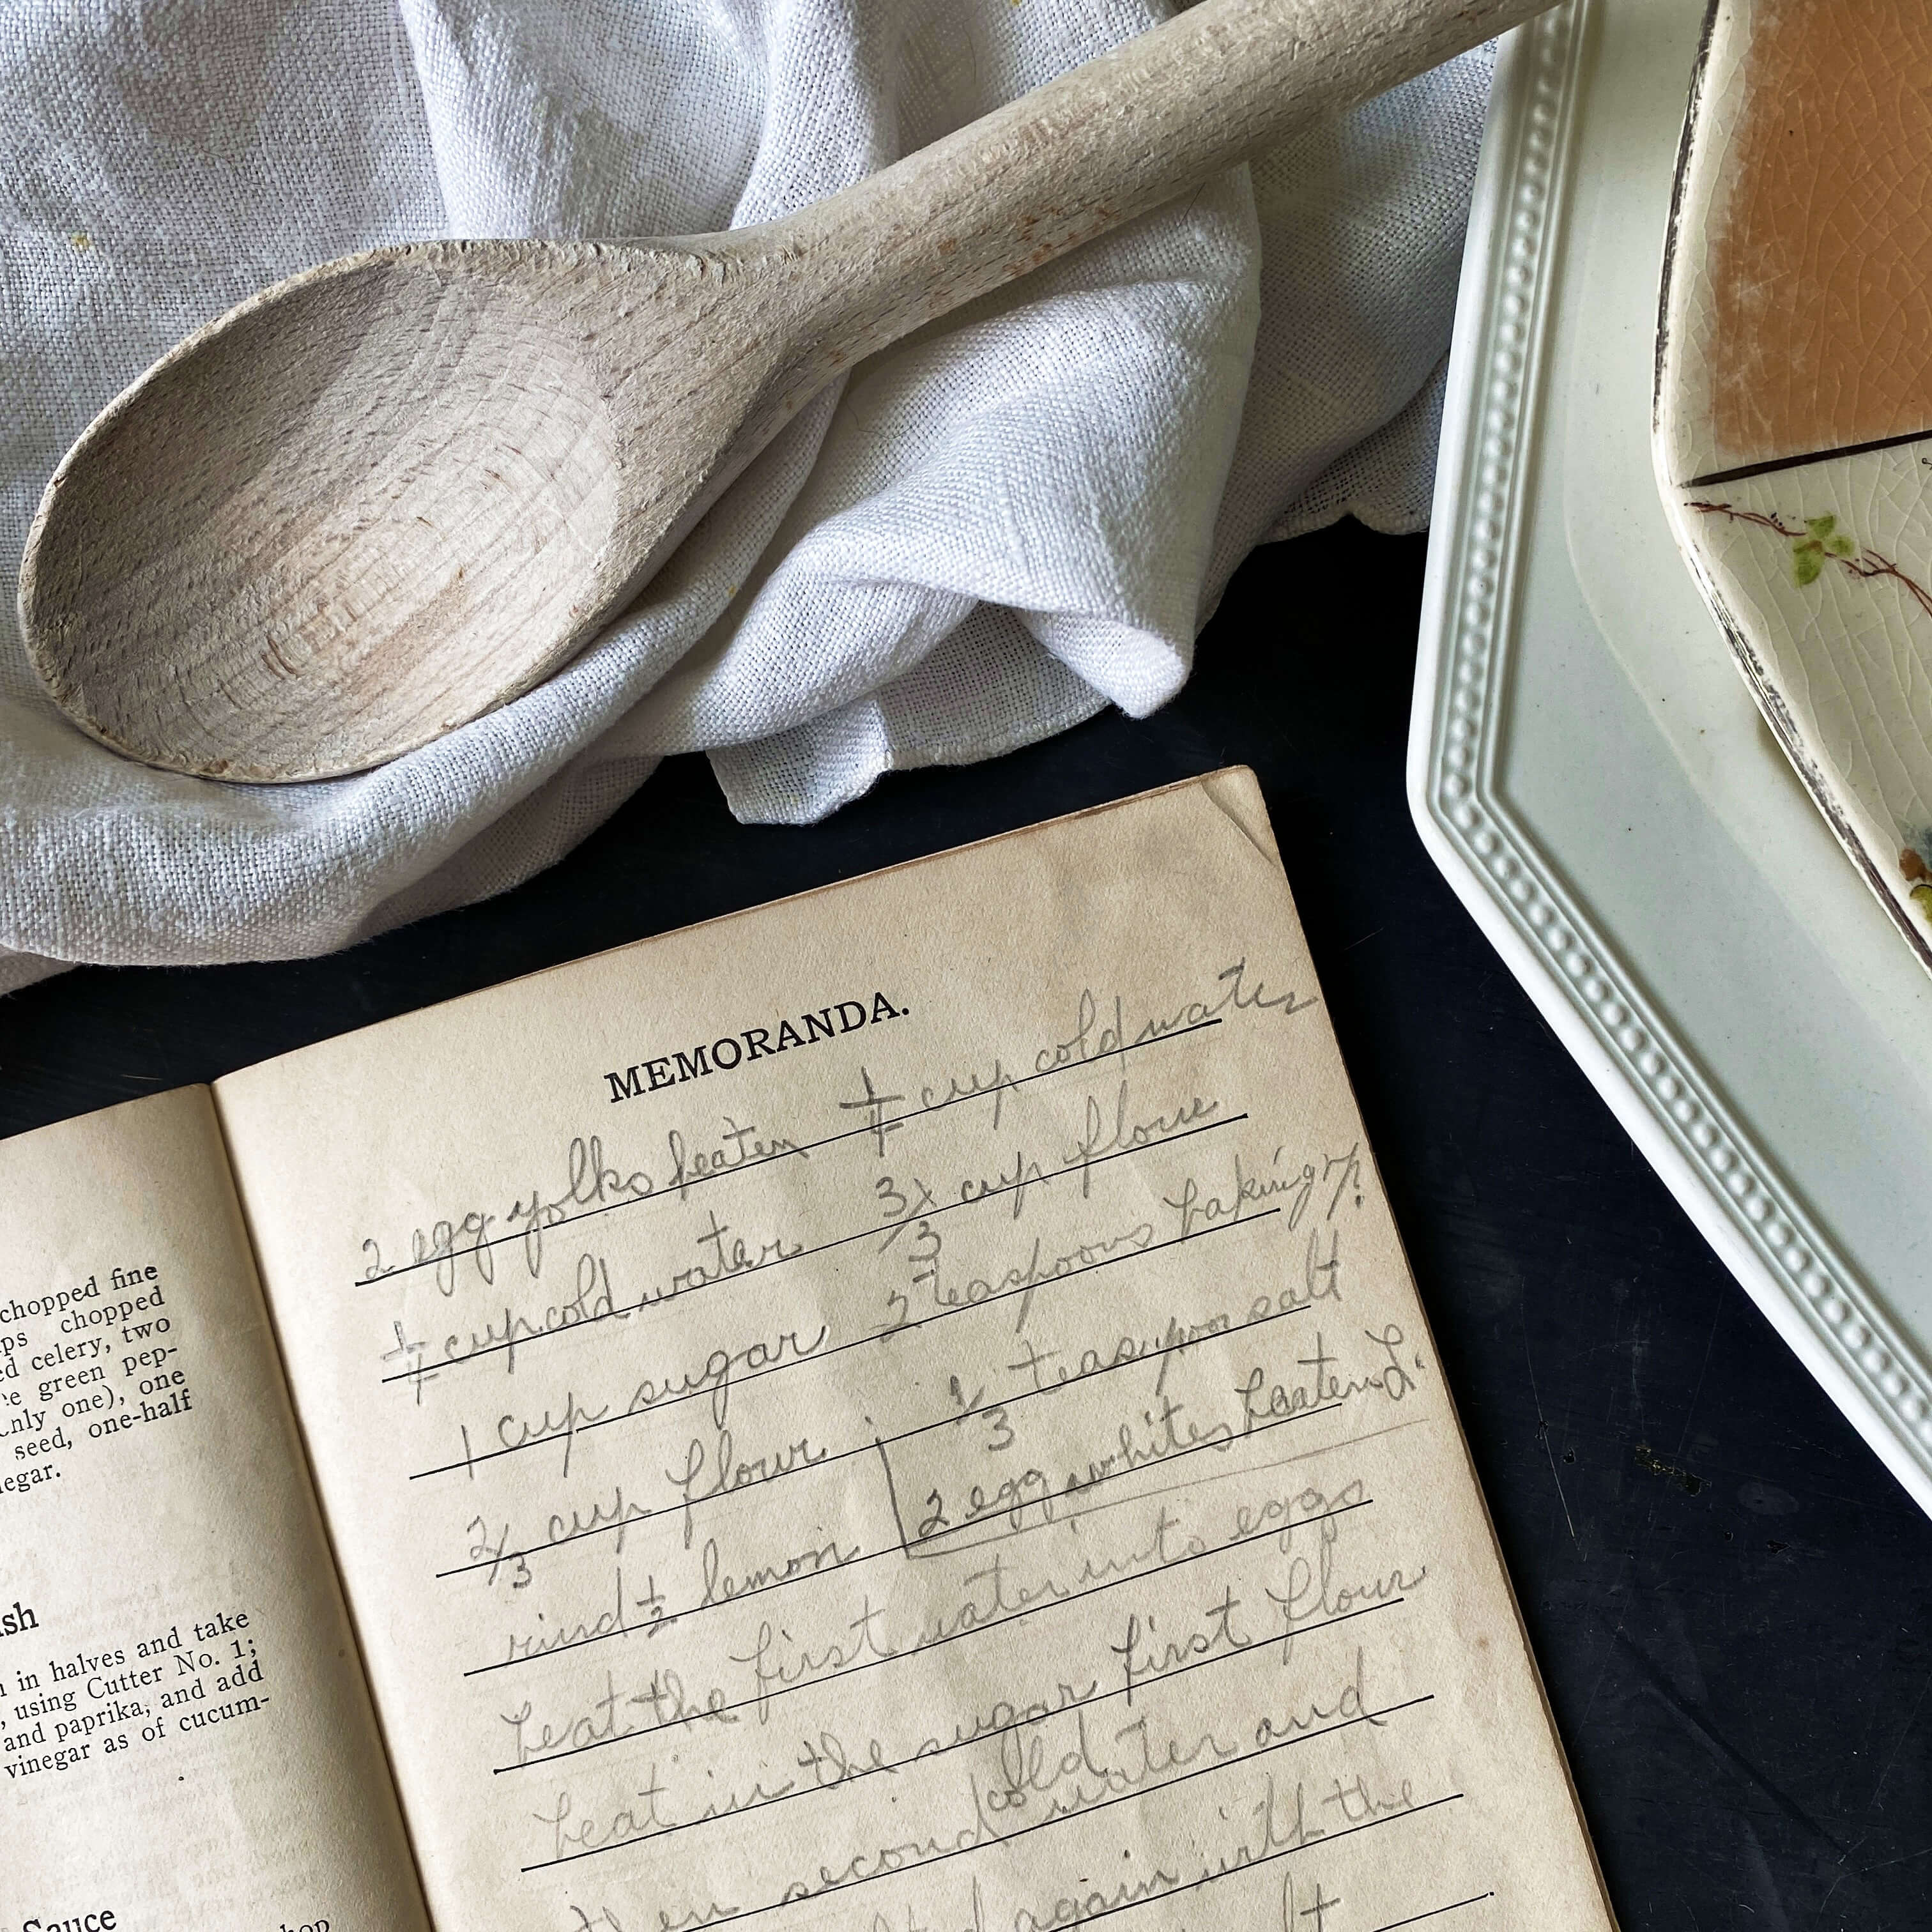 chopped fine
chopped
celery, two
green pep-
only one), one
seed, one-half
in halves and take
using Cutter No. 1;
and paprika, and add
vinegar as of cucum-
Sauce
MEMORANDA.
2 egg yolks beaten 1/4 cup cold water
1/4 cup cold water 3/3 cup flour
1 cup sugar 2 teaspoons baking p.
2/3 cup flour 1/3 teaspoon salt
rind 1/2 lemon 2 egg whites beaten L.
beat the first water into eggs
beat in the sugar first flour
cold
then second water and
again with the